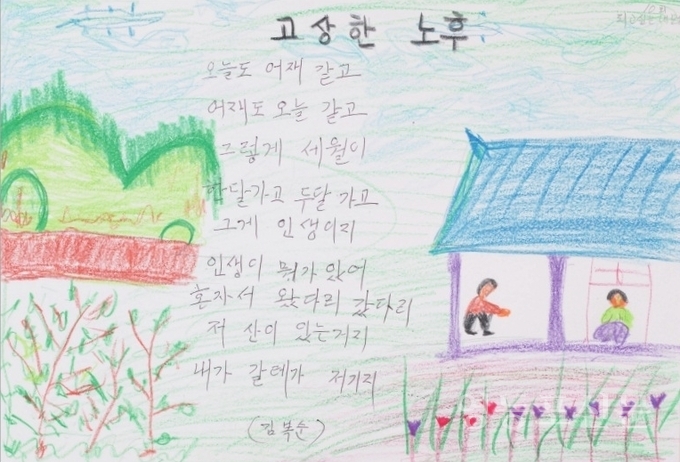 고상한 노후
오늘도 어재 같고
어재도 오늘 같고
그렇게 세월이
한달가고 두달 가고
그게 인생이지
인생이 뭐가 있어
혼자서 왔다리 갔다리
저 산이 있는거지
내가 갈테가 저기지
(김복순)